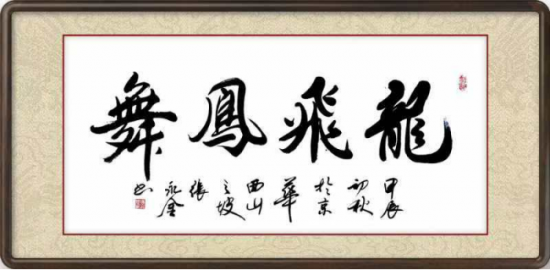 龍飛鳳舞
甲辰
初秋
於京
華
西山
之坡
張
永全
书